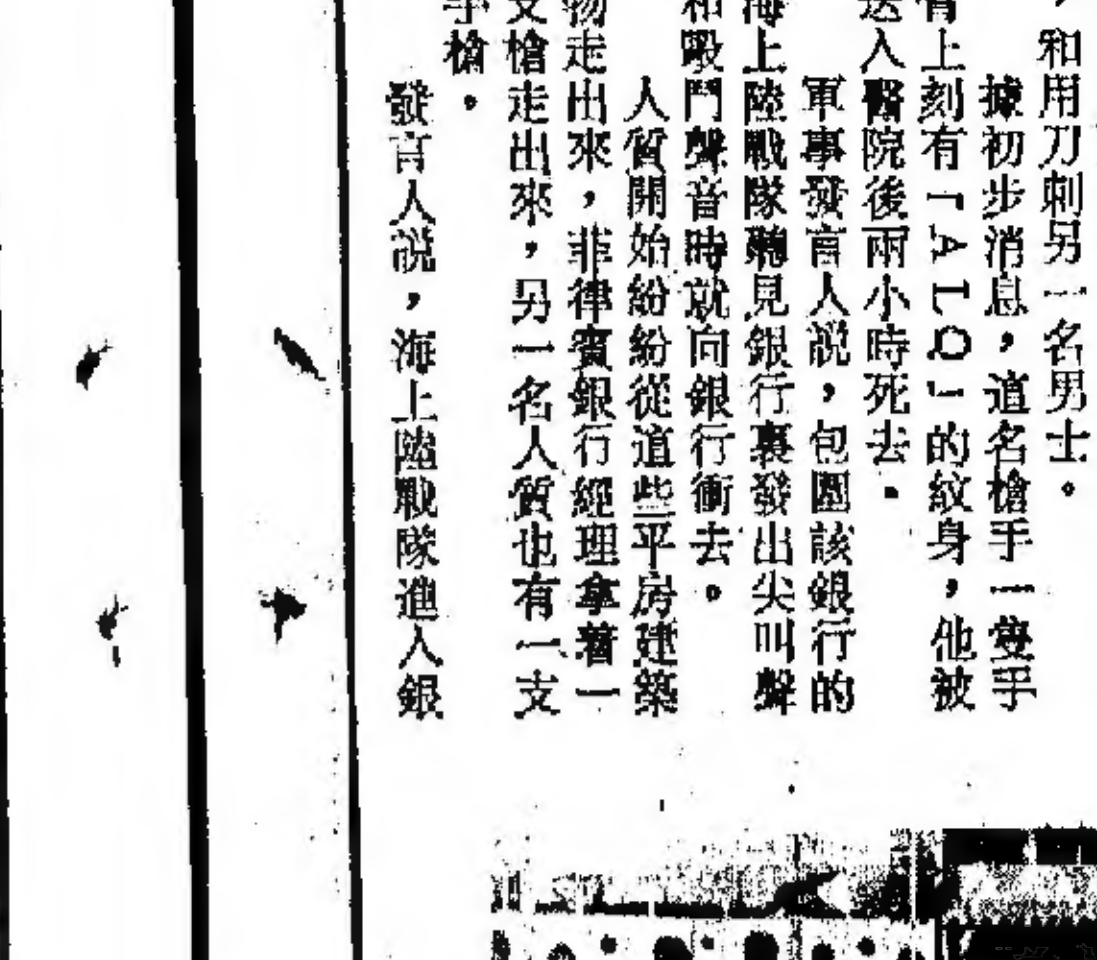 ，和用刀刺另一名男士。
據初步消息，這名槍手一隻手
上刻有「ALQ」的紋身，他被
送入醫院後兩小時死去。
軍事發言人說，包圍該銀行的
海上陸戰隊聽見銀行裏發出尖叫聲
和毆鬥聲音時就向銀行衝去。
人質開始紛紛從這些平房建築
物走出來，菲律賓銀行經理拿着一
支槍走出來，另一名人質也有一支
手槍。
發言人說，海上陸戰隊進入銀